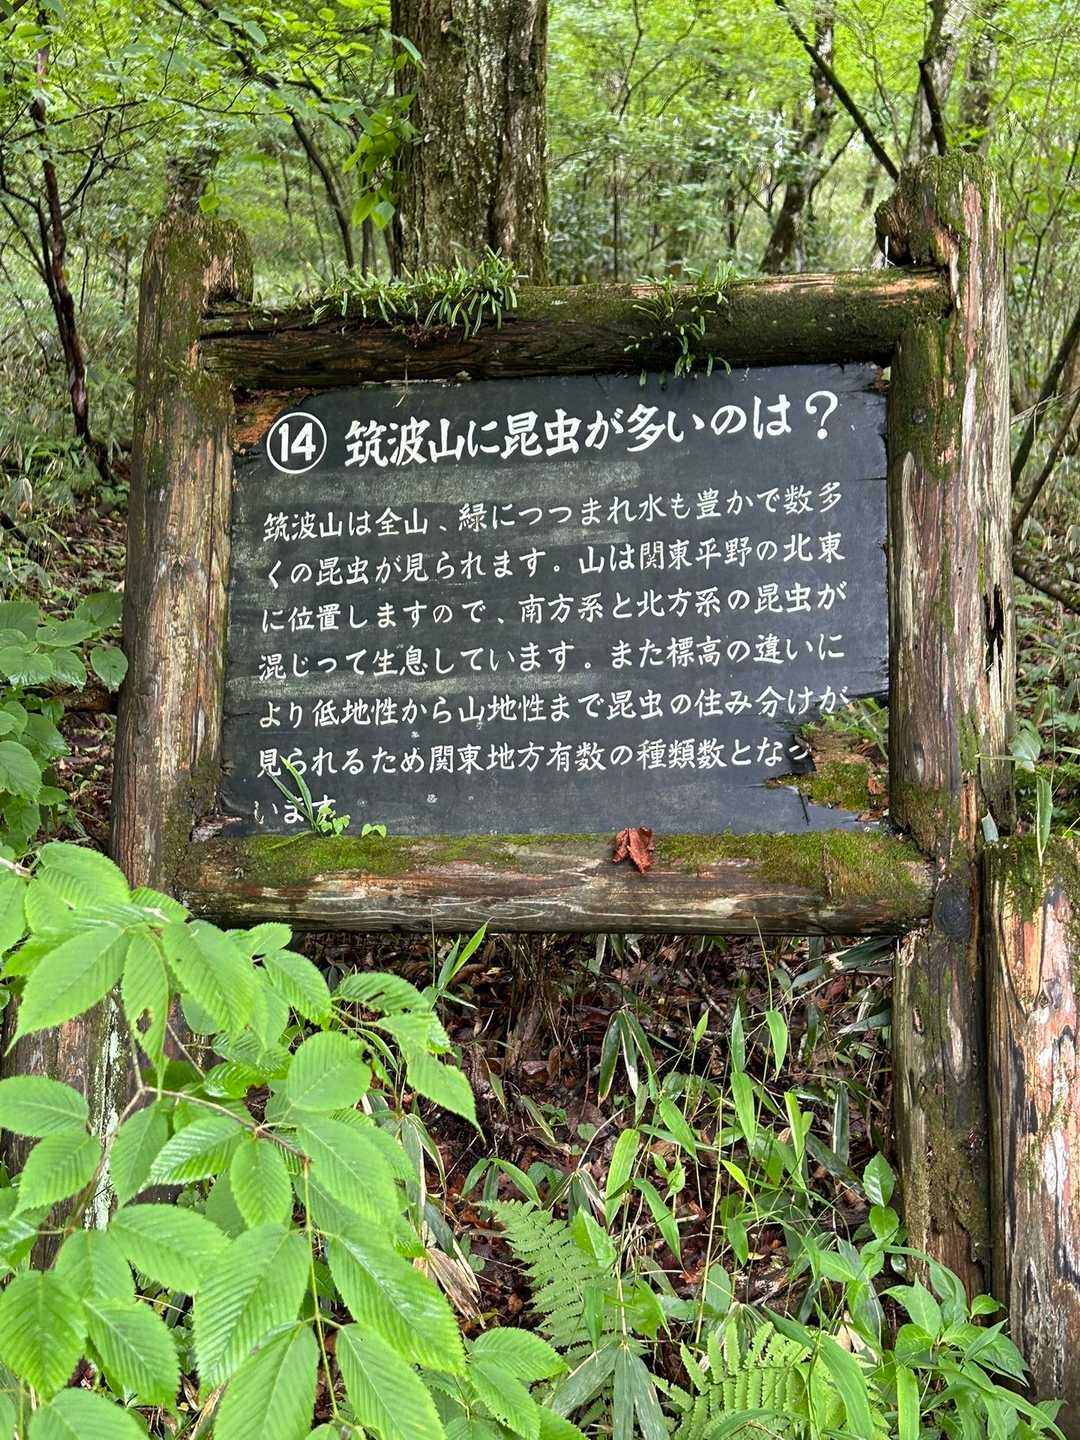 ⑭ 筑波山に昆虫が多いのは？
筑波山は全山、緑につつまれ水も豊かで数多
くの昆虫が見られます。山は関東平野の北東
に位置しますので、南方系と北方系の昆虫が
混じって生息しています。また標高の違いに
より低地性から山地性まで昆虫の住み分けが
見られるため関東地方有数の種類数となっ
います